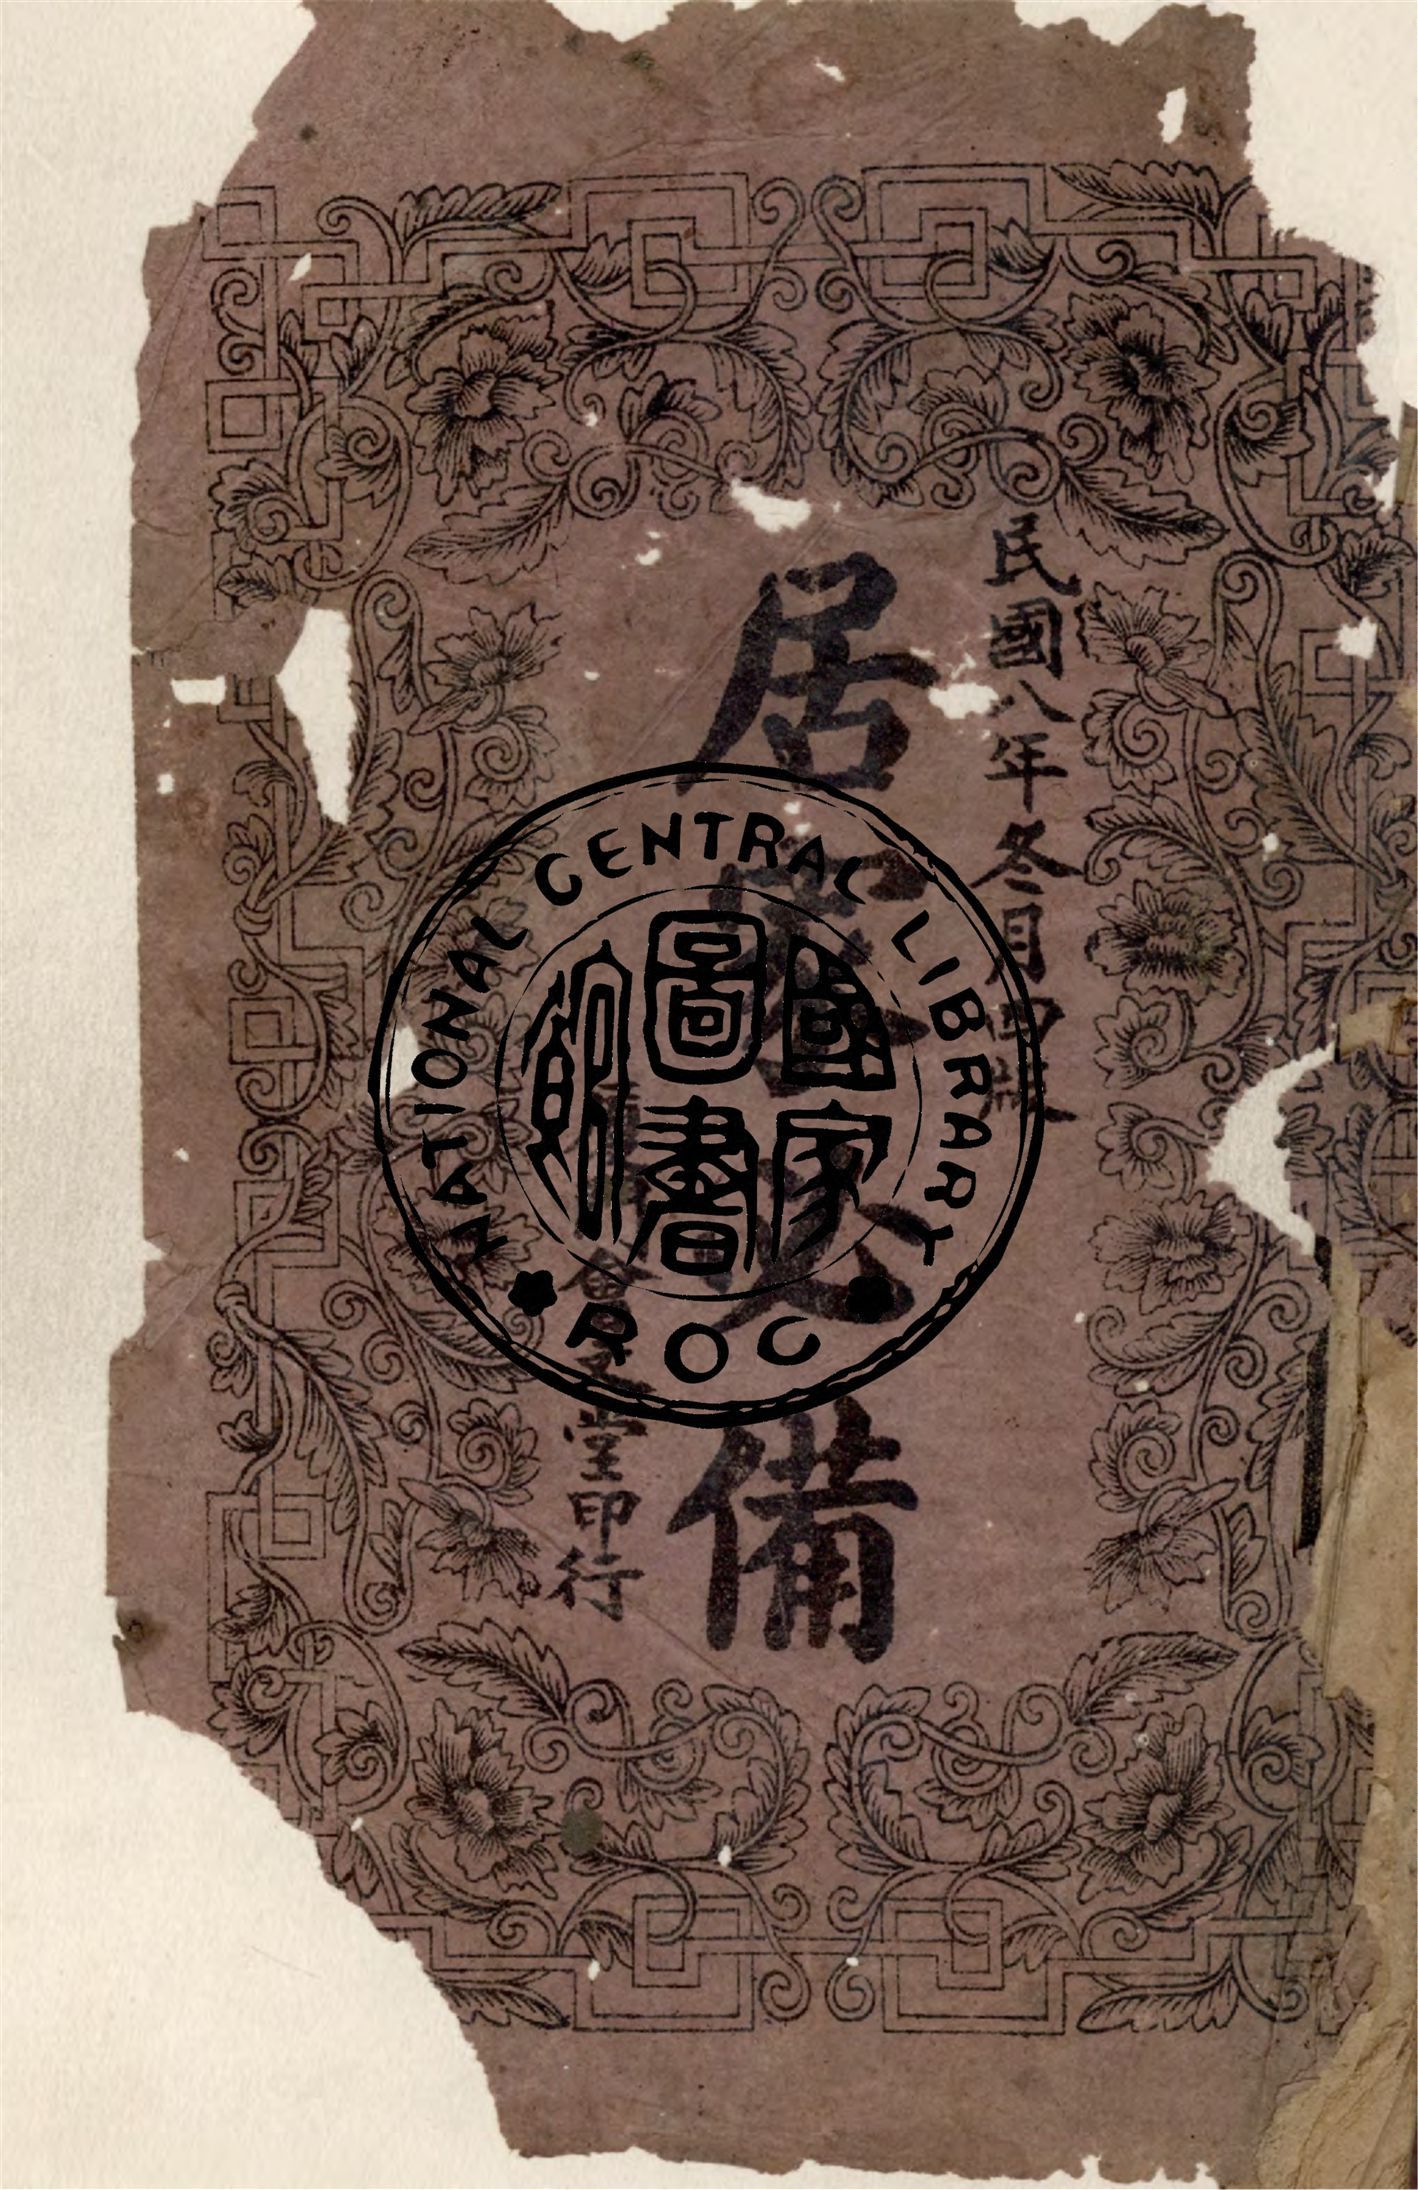 民國八年冬月四版
居家必備
堂印行
NATIONAL CENTRAL LIBRARY
國家
圖書
館
ROC